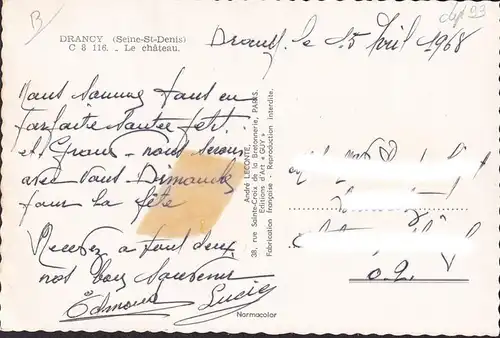 B
dept 93
DRANCY (Seine-St-Denis)
C 8 116. - Le château.
Drancy. le 15 Avril 1968
Nous sommes tous en
parfaite santée
et Grand - nous serons
avec vous Dimanche
pour la fête
Recevez a tout deux
nos bons souvenir
Edmond Lucie
André LECONTE,
38, rue Sainte-Croix de la Bretonnerie, PARIS.
Editions d'Art "GUY"
Fabrication française - Reproduction interdite.
Normacolor